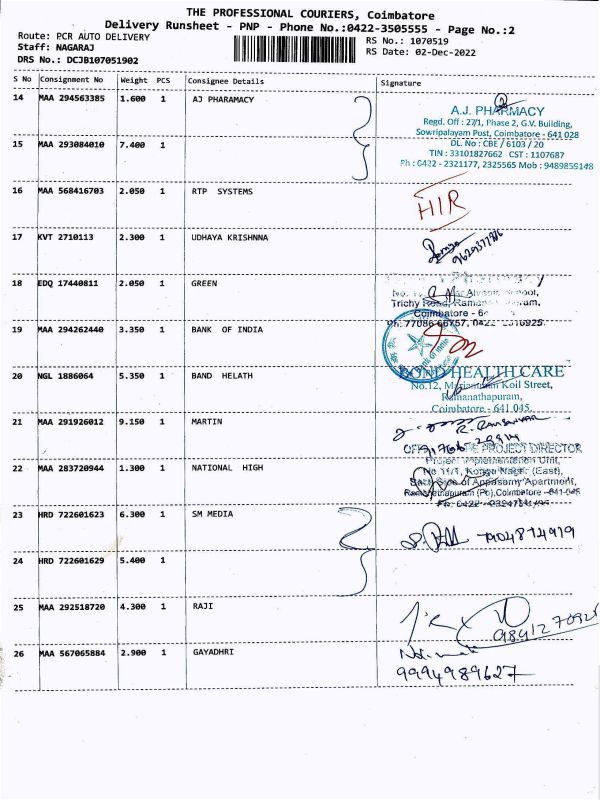 THE PROFESSIONAL COURIERS, Coimbatore
Delivery Runsheet - PNP - Phone No.:0422-3505555 - Page No.:2
Route: PCR AUTO DELIVERY
Staff: NAGARAJ
DRS No.: DCJB107051902
RS No.: 1070519
RS Date: 02-Dec-2022
S No Consignment No Weight PCS Consignee Details Signature
14 MAA 294563385 1.600 1 AJ PHARAMACY
A.J. PHARMACY
Regd. Off : 27/1, Phase 2, G.V. Building,
Sowripalayam Post, Coimbatore - 641 028
DL. No : CBE / 6103 / 20
TIN : 33101827662 CST : 1107687
Ph : 0422 - 2321177, 2325565 Mob : 9489859148
15 MAA 293084010 7.400 1
16 MAA 568416703 2.050 1 RTP SYSTEMS
HIR
17 KVT 2710113 2.300 1 UDHAYA KRISHNNA
18 EDQ 17440811 2.050 1 GREEN
Trichy Road,
Coimbatore - 6
Ph: 77086 66757, 0422
19 MAA 294262440 3.350 1 BANK OF INDIA
20 NGL 1886064 5.350 1 BAND HELATH
BOND HEALTH CARE
No.12, Mariamman Koil Street,
Ramanathapuram,
Coimbatore - 641 045.
21 MAA 291926012 9.150 1 MARTIN
PROJECT DIRECTOR
22 MAA 283720944 1.300 1 NATIONAL HIGH
Project Implementation Unit,
No 11/1, Konga Nagar (East),
of Appasamy Apartment,
Ramanathapuram (Po), Coimbatore - 641 045
23 HRD 722601623 6.300 1 SM MEDIA
7904874979
24 HRD 722601629 5.400 1
25 MAA 292518720 4.300 1 RAJI
26 MAA 567065884 2.900 1 GAYADHRI
9994989627